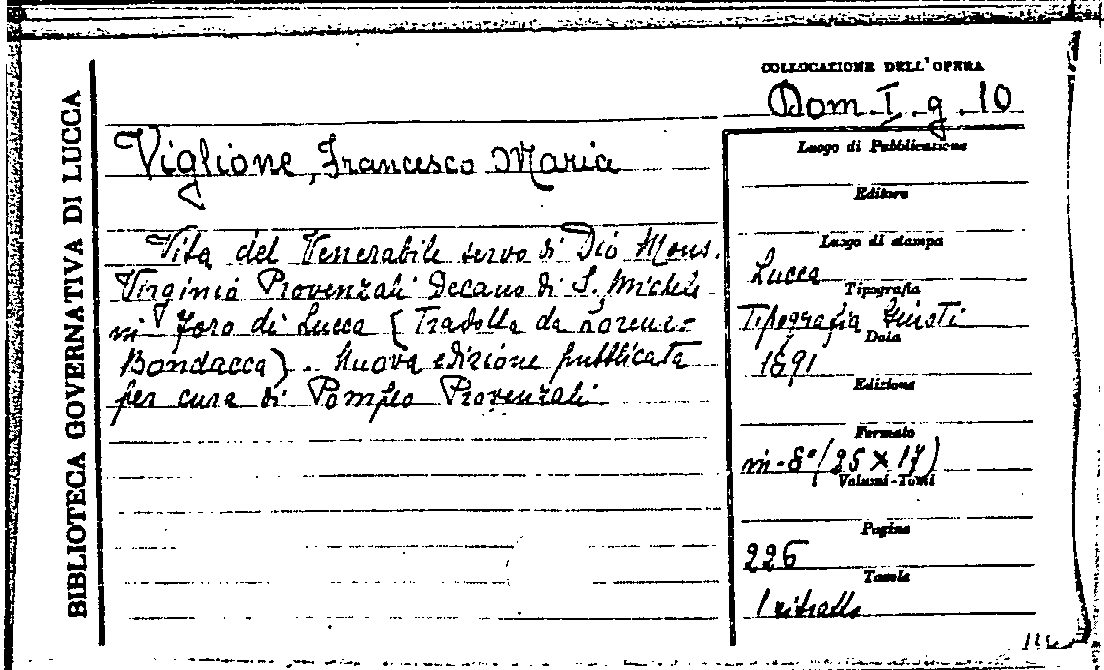 BIBLIOTECA GOVERNATIVA DI LUCCA
COLLOCAZIONE DELL'OPERA
Dom. I. g. 10
Viglione, Francesco Maria
Vita del Venerabile servo di Dio Mons.
Virginio Provenzali Decano di S. Michele
in Foro di Lucca (Tradotta da Lorenz=
Bondacca). Nuova edizione pubblicata
per cura di Pompeo Provenzali
Luogo di Pubblicazione
Editore
Luogo di stampa
Lucca
Tipografia
Tipografia Giusti
Data
1891
Edizione
Formato
in-8° (25 x 17)
Volumi-Tomi
Pagine
226
Tavole
1 ritratto